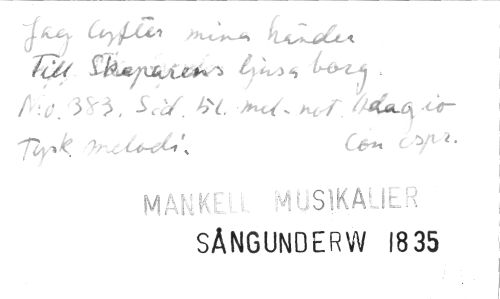 Jag lyfter mina händer
Till Skaparens ljusa borg.
No. 383. Sid. 51. mel. not. Adagio
Tysk melodi. Con espr.
MANKELL MUSIKALIER
SÅNGUNDERW 1835